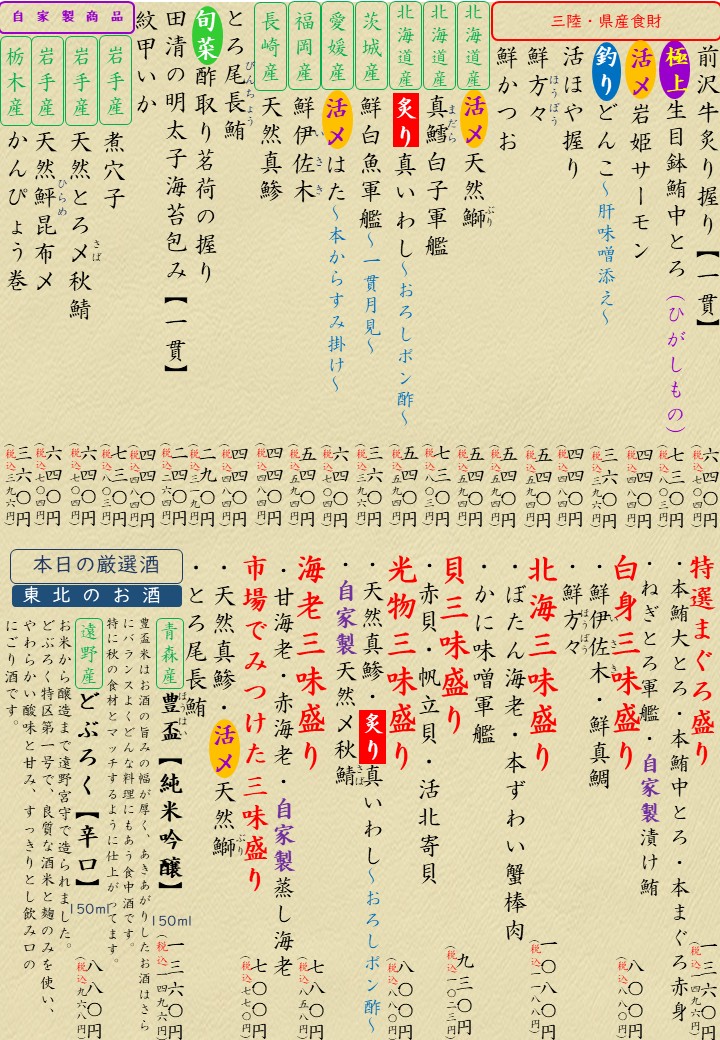 三陸・県産食財
前沢牛炙り握り【一貫】
六四〇円
(税込七〇四円)
極上生目鉢鮪中とろ(ひがしもの)
七三〇円
(税込八〇三円)
活〆岩姫サーモン
四四〇円
(税込四八四円)
釣りどんこ~肝味噌添え~
三六〇円
(税込三九六円)
活ほや握り
四四〇円
(税込四八四円)
鮮方々
ほうぼう
五四〇円
(税込五九四円)
鮮かつお
五四〇円
(税込五九四円)
北海道産
活〆天然鰤
ぶり
五四〇円
(税込五九四円)
北海道産
真鱈白子軍艦
まだら
七三〇円
(税込八〇三円)
北海道産
炙り真いわし~おろしポン酢~
五四〇円
(税込五九四円)
茨城産
鮮白魚軍艦~一貫月見~
三六〇円
(税込三九六円)
愛媛産
活〆はた~本からすみ掛け~
六四〇円
(税込七〇四円)
福岡産
鮮伊佐木
いさき
五四〇円
(税込五九四円)
長崎産
天然真鯵
四四〇円
(税込四八四円)
とろ尾長鮪
びんちょう
四四〇円
(税込四八四円)
旬菜酢取り茗荷の握り
二九〇円
(税込三一九円)
田清の明太子海苔包み【一貫】
二四〇円
(税込二六四円)
紋甲いか
四四〇円
(税込四八四円)
自家製商品
岩手産
煮穴子
七三〇円
(税込八〇三円)
岩手産
天然とろ〆秋鯖
さば
六四〇円
(税込七〇四円)
岩手産
天然鮃昆布〆
ひらめ
六四〇円
(税込七〇四円)
栃木産
かんぴょう巻
三六〇円
(税込三九六円)
特選まぐろ盛り
・本鮪大とろ・本鮪中とろ・本まぐろ赤身
一三六〇円
(税込一四九六円)
・ねぎとろ軍艦・自家製漬け鮪
白身三味盛り
・鮮伊佐木・鮮真鯛
いさき
八〇〇円
(税込八八〇円)
・鮮方々
ほうぼう
北海三味盛り
・ぼたん海老・本ずわい蟹棒肉
一〇八〇円
(税込一一八八円)
・かに味噌軍艦
貝三味盛り
・赤貝・帆立貝・活北寄貝
九三〇円
(税込一〇二三円)
光物三味盛り
・天然真鯵・炙り真いわし~おろしポン酢~
八〇〇円
(税込八八〇円)
・自家製天然〆秋鯖
さば
海老三味盛り
・甘海老・赤海老・自家製蒸し海老
七八〇円
(税込八五八円)
市場でみつけた三味盛り
・天然真鯵・活〆天然鰤
ぶり
七〇〇円
(税込七七〇円)
・とろ尾長鮪
本日の厳選酒
東北のお酒
青森産
豊盃【純米吟醸】
ほうはい
150ml
一三六〇円
豊盃米はお酒の旨みの幅が厚く、あきあがりしたお酒はさら
にバランスよくどんな料理にもあう食中酒です。
特に秋の食材とマッチするように仕上がってます。
遠野産
どぶろく【辛口】
150ml
八八〇円
(税込九六八円)
お米から醸造まで遠野宮守で造られました。
どぶろく特区第一号で、良質な酒米と麹のみを使い、
やわらかい酸味と甘み、すっきりとし飲み口の
にごり酒です。